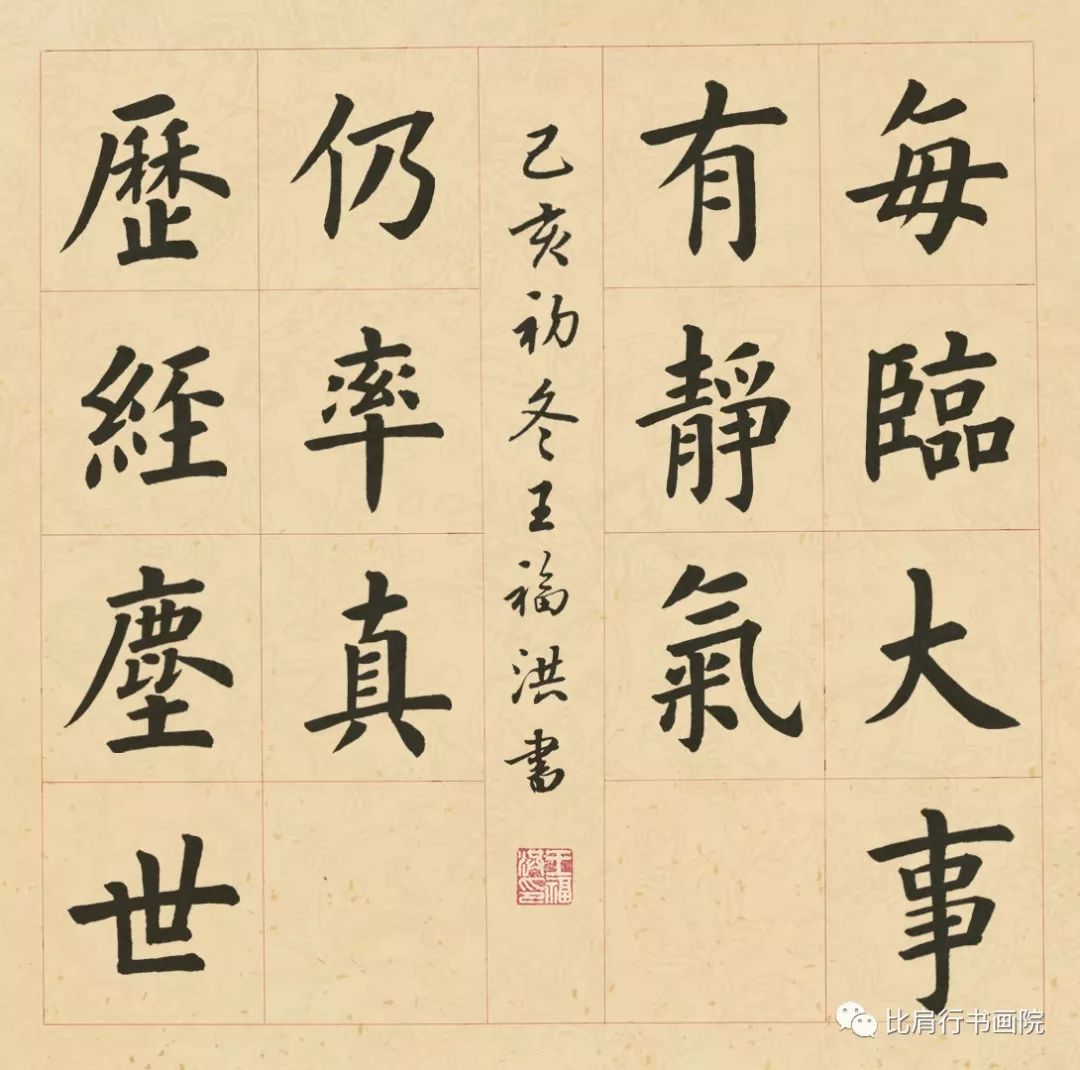 每臨大事
有靜氣
歷經塵世
仍率真
己亥初冬王福洪書
王福
洪印
比肩行书画院